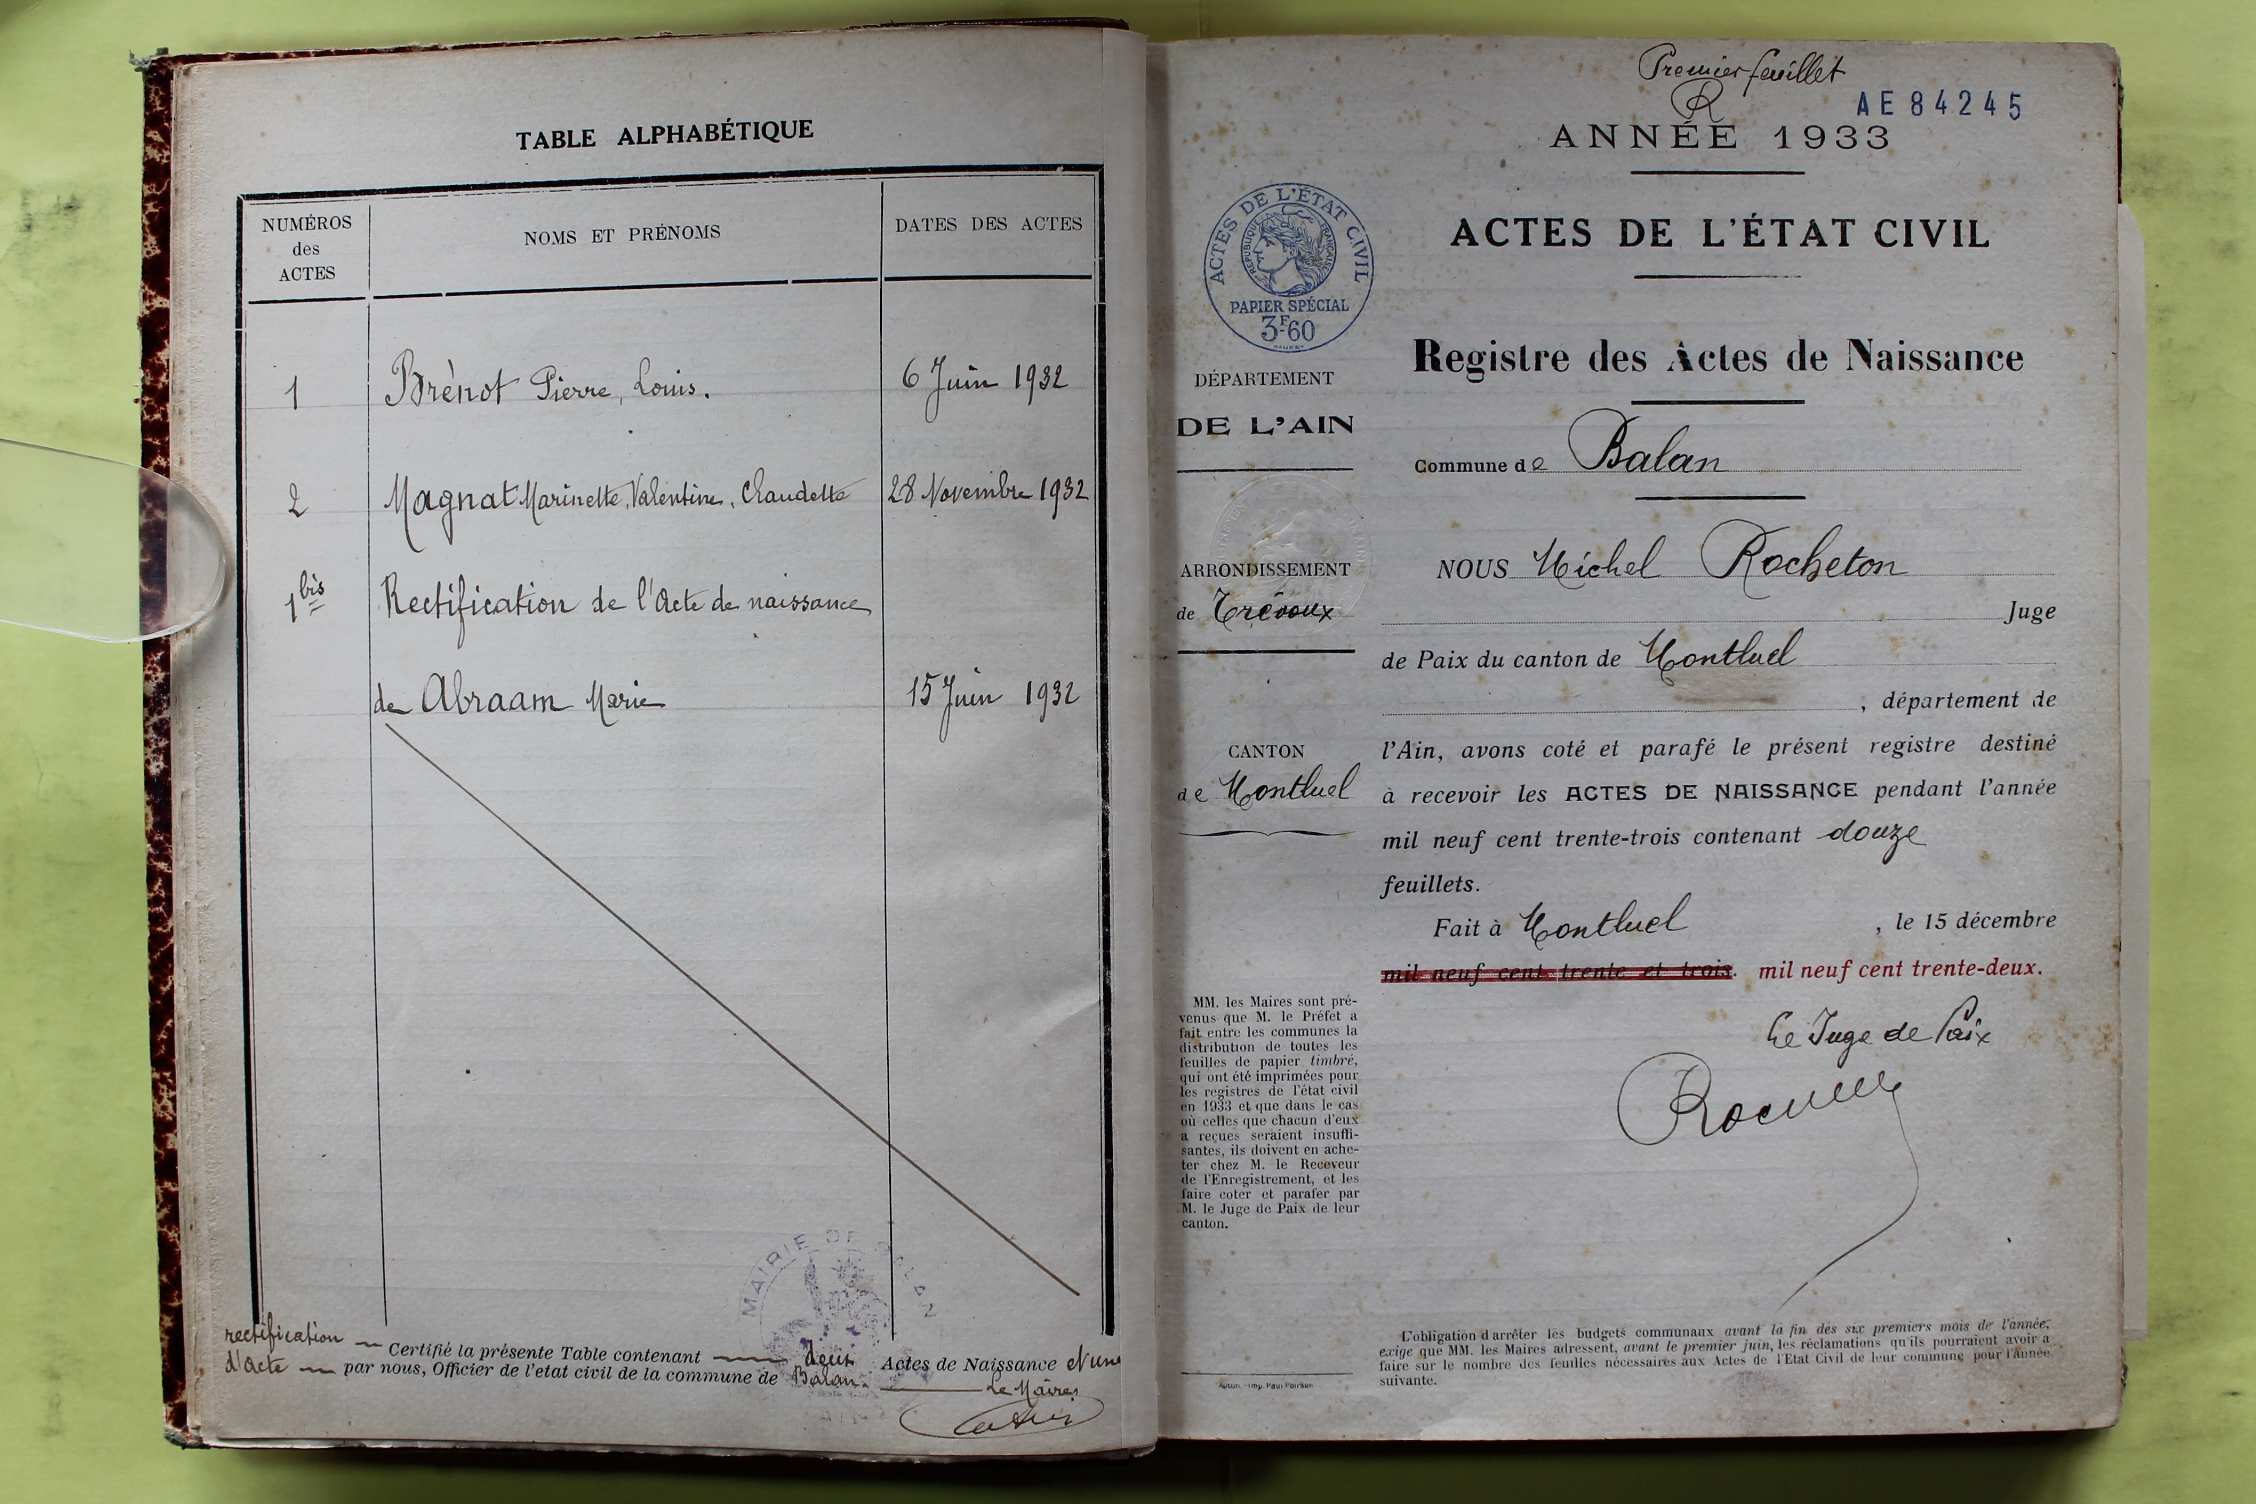 TABLE ALPHABÉTIQUE
NUMÉROS
des
ACTES
NOMS ET PRÉNOMS
DATES DES ACTES
1 Brénot Pierre, Louis. 6 Juin 1932
2 Magnat Marinette, Valentine, Claudette 28 Novembre 1932
1bis Rectification de l'Acte de naissance
de Abraam Marie 15 Juin 1932
MAIRIE DE BALAN
rectification
d'acte
Certifié la présente Table contenant deux Actes de Naissance et une
par nous, Officier de l'etat civil de la commune de Balan.
Le Maire,
Premier feuillet
AE 84245
ANNÉE 1933
ACTES DE L'ÉTAT CIVIL
RÉPUBLIQUE FRANÇAISE
PAPIER SPÉCIAL
3F-60
ACTES DE L'ÉTAT CIVIL
Registre des Actes de Naissance
DÉPARTEMENT
DE L'AIN
Commune de Balan
ARRONDISSEMENT
de Trévoux
CANTON
de Montluel
NOUS Michel Rocheton
Juge
de Paix du canton de Montluel
, département de
l'Ain, avons coté et parafé le présent registre destiné
à recevoir les ACTES DE NAISSANCE pendant l'année
mil neuf cent trente-trois contenant douze
feuillets.
Fait à Montluel , le 15 décembre
mil neuf cent trente et trois. mil neuf cent trente-deux.
Le Juge de Paix
MM. les Maires sont pré-
venus que M. le Préfet a
fait entre les communes la
distribution de toutes les
feuilles de papier timbré,
qui ont été imprimées pour
les registres de l'état civil
en 1933 et que dans le cas
où celles que chacun d'eux
a reçues seraient insuffi-
santes, ils doivent en ache-
ter chez M. le Receveur
de l'Enregistrement, et les
faire coter et parafer par
M. le Juge de Paix de leur
canton.
Autun. - Imp. Paul Poirson
L'obligation d'arrêter les budgets communaux avant la fin des six premiers mois de l'année,
exige que MM. les Maires adressent, avant le premier juin, les réclamations qu'ils pourraient avoir a
faire sur le nombre des feuilles nécessaires aux Actes de l'Etat Civil de leur commune pour l'année
suivante.